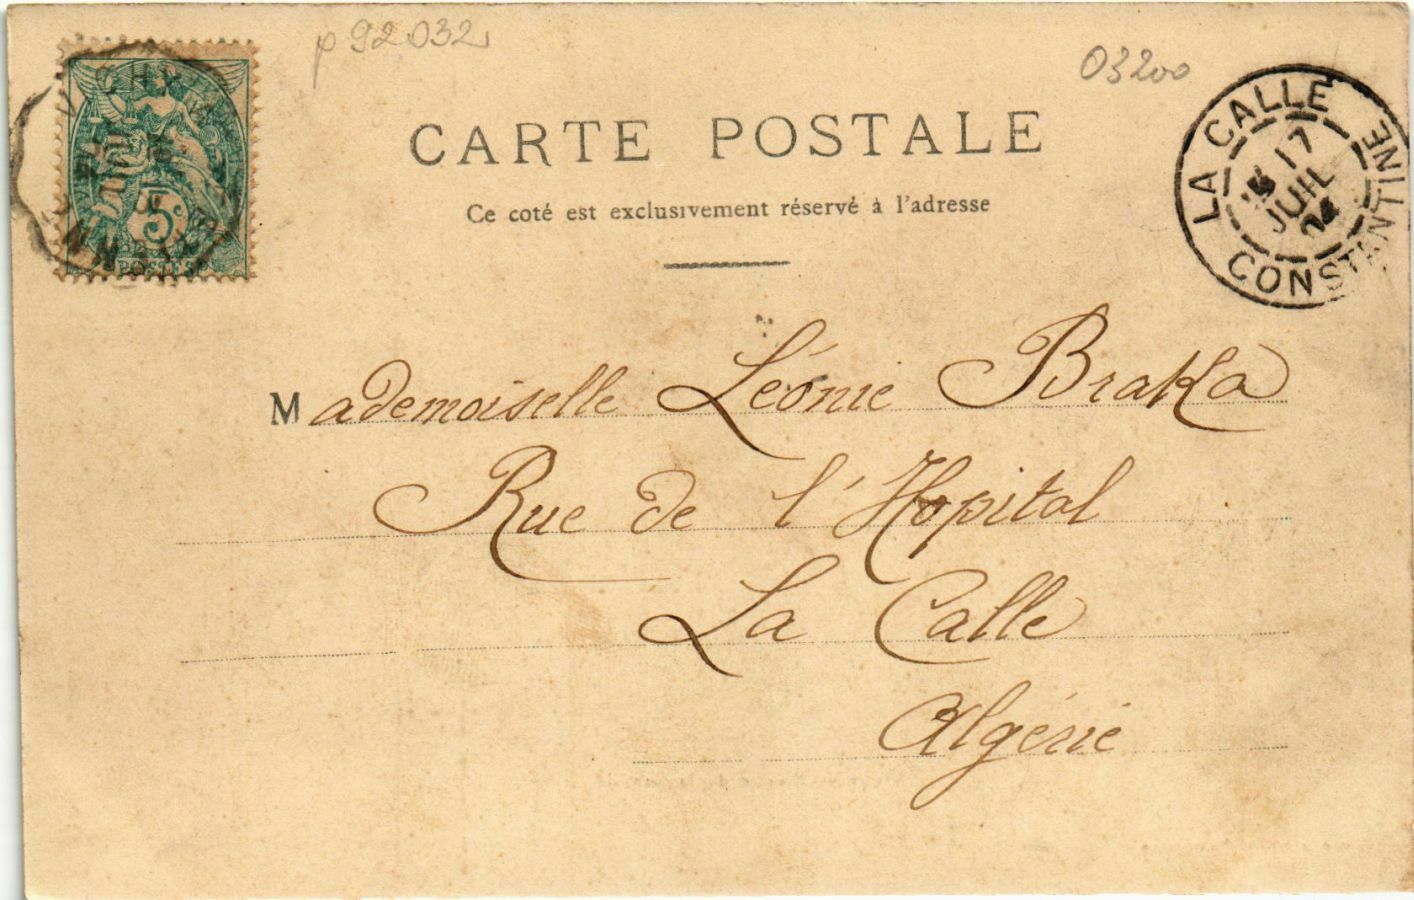 p 92032
03200
CARTE POSTALE
Ce coté est exclusivement réservé à l'adresse
LA CALLE
17
JUIL
04
CONSTANTINE
5c
POSTES
Mademoiselle Léonie Braka
Rue de l'Hopital
La Calle
Algérie